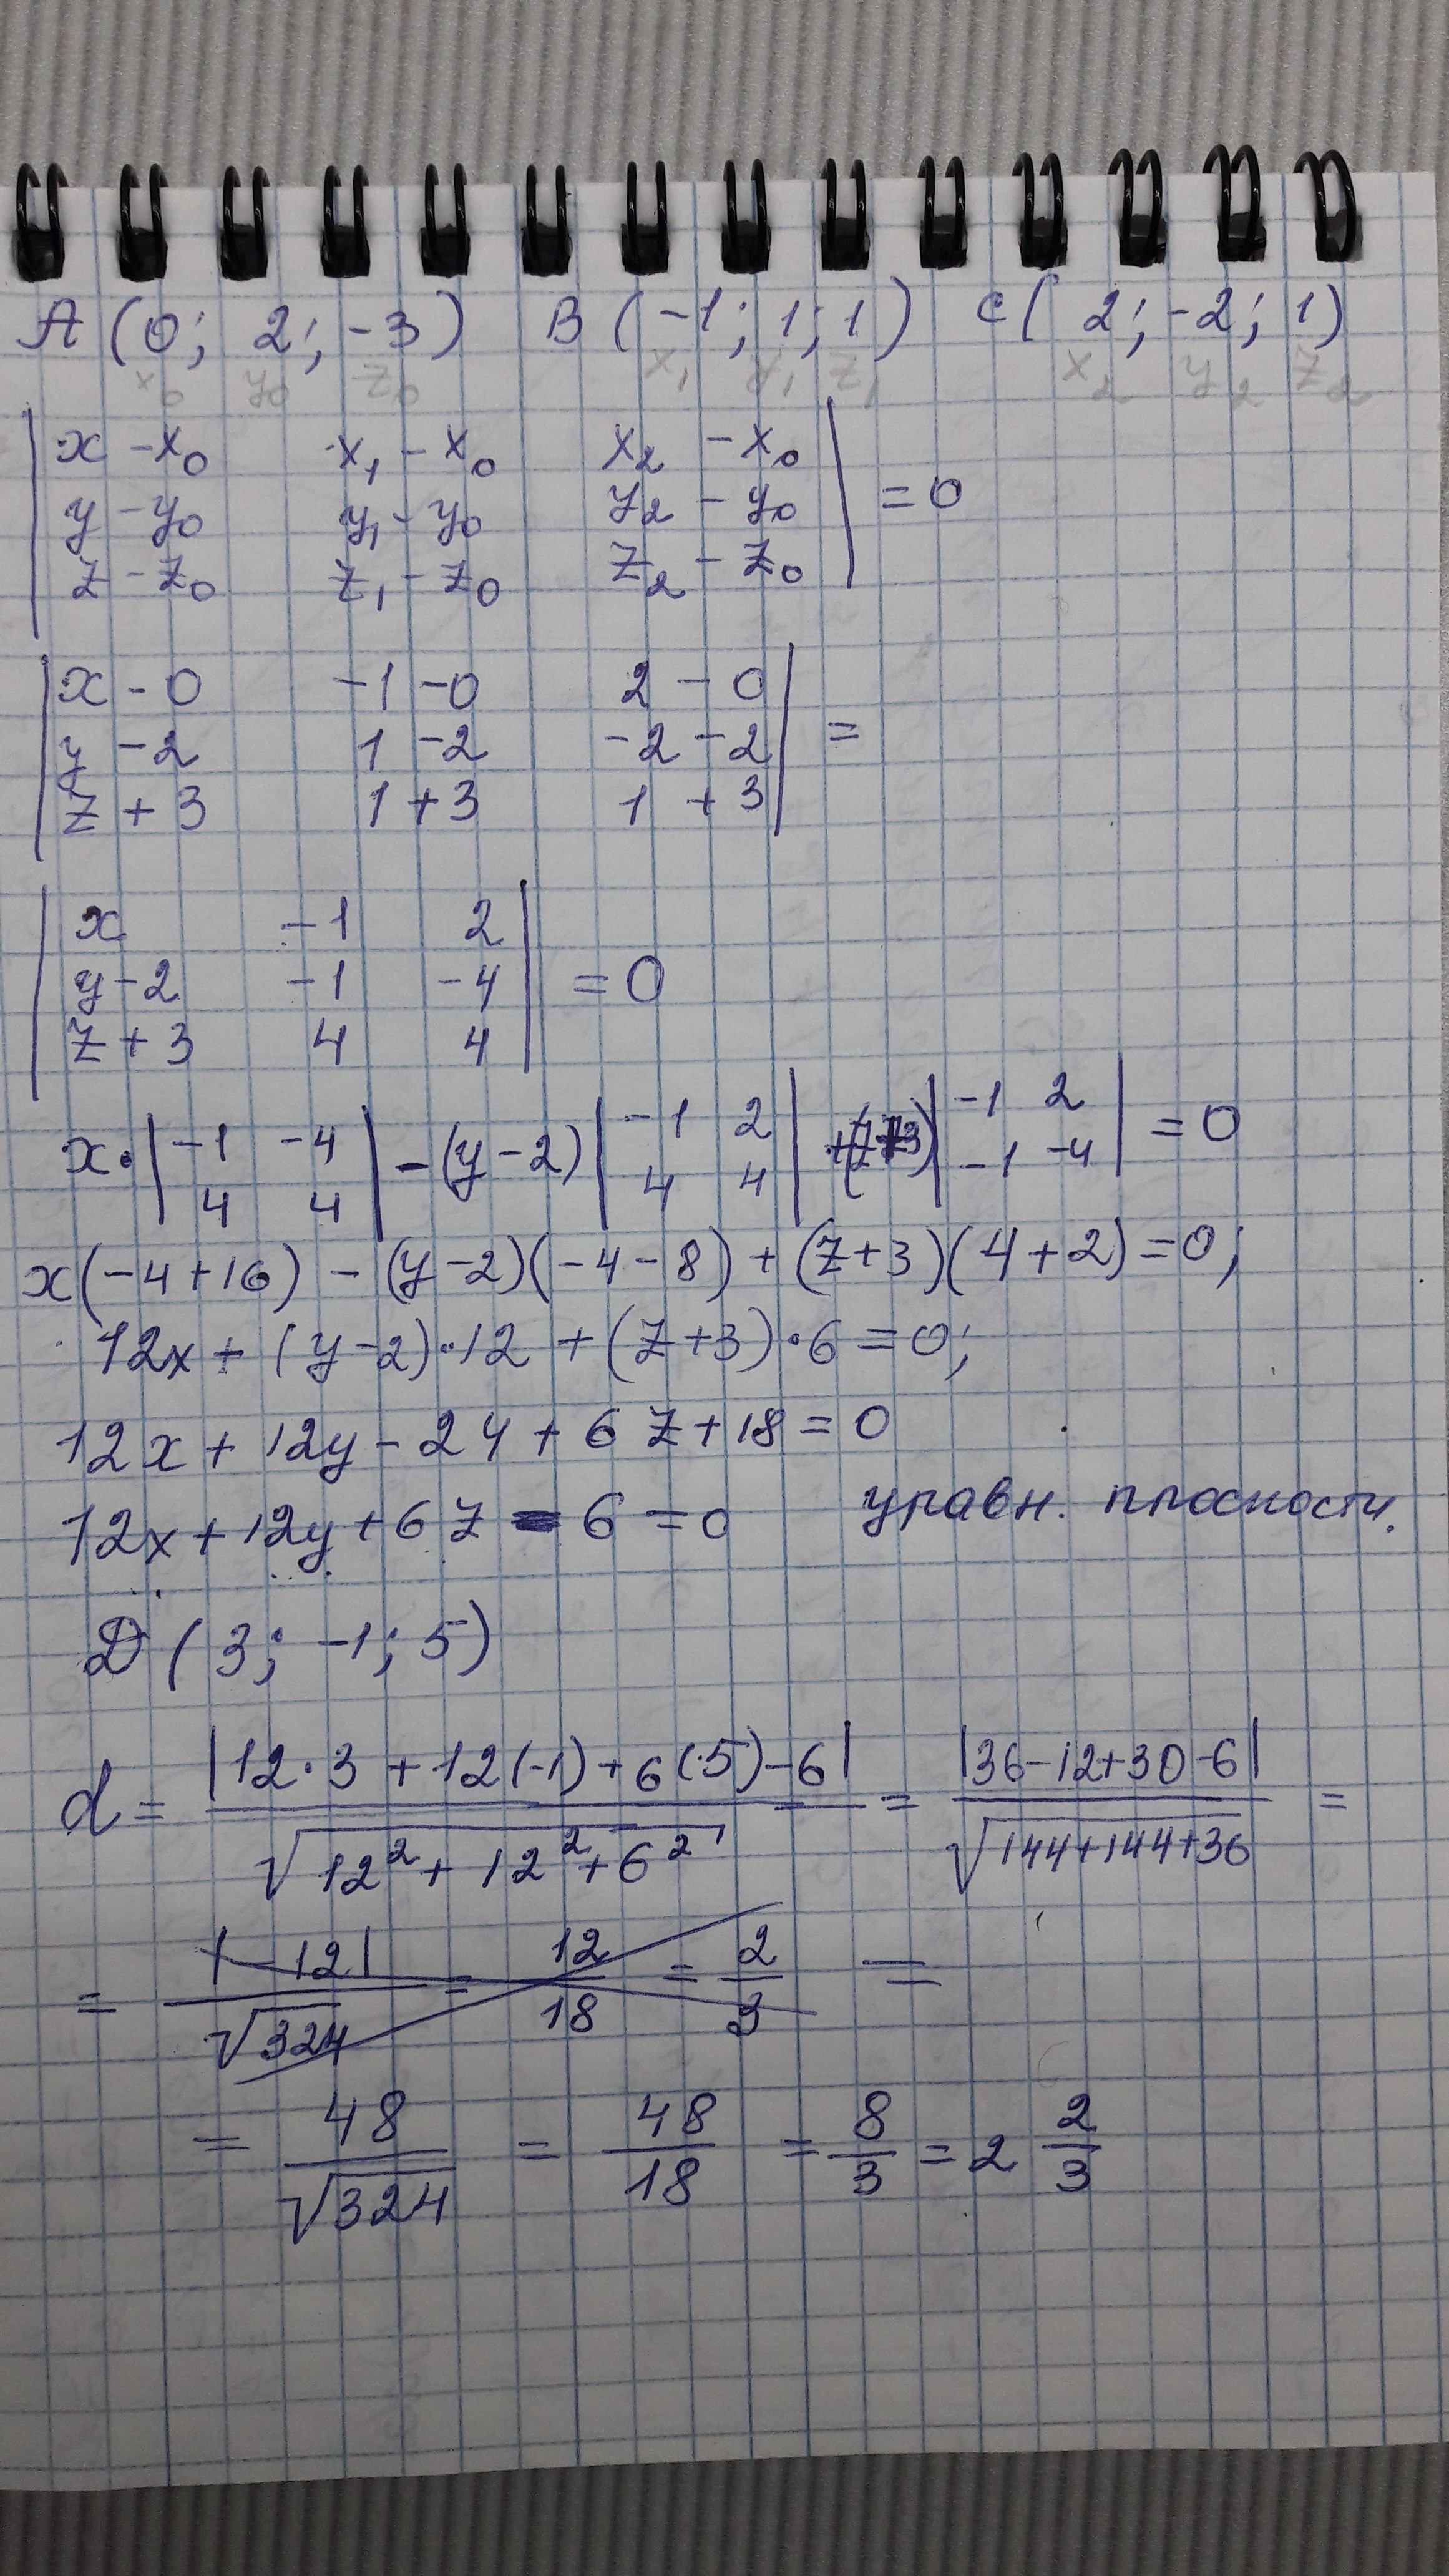 A (0; 2; -3) B (-1; 1; 1) C( 2; -2; 1)
x₀ y₀ z₀ x₁ y₁ z₁ x₂ y₂ z₂
| x - x₀ x₁ - x₀ x₂ - x₀ |
| y - y₀ y₁ - y₀ y₂ - y₀ | = 0
| z - z₀ z₁ - z₀ z₂ - z₀ |
| x - 0 -1 - 0 2 - 0 |
| y - 2 1 - 2 -2 - 2 | =
| z + 3 1 + 3 1 + 3 |
| x -1 2 |
| y - 2 -1 -4 | = 0
| z + 3 4 4 |
x · | -1 -4 | - (y - 2) | -1 2 | + (z+3) | -1 2 | = 0
| 4 4 | | 4 4 | | -1 -4 |
x(-4+16) - (y-2)(-4-8) + (z+3)(4+2) = 0;
12x + (y-2)·12 + (z+3)·6 = 0;
12x + 12y - 24 + 6z + 18 = 0
12x + 12y + 6z - 6 = 0 уравн. плоскости.
D ( 3; -1; 5)
d = |12·3 + 12(-1) + 6(·5) - 6| / √12² + 12² + 6² = |36-12+30-6| / √144+144+36 =
= |-12| / √324 = 12/18 = 2/3 =
= 48/√324 = 48/18 = 8/3 = 2 2/3